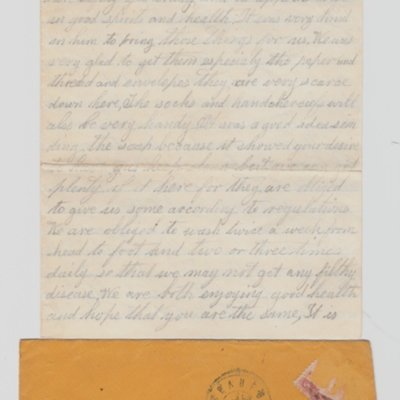 in good spirits and health. It was very kind
in him to bring those things for us. We was
very glad to get them especialy the paper and
thread and envelopes they are very scarse
down here, The socks and handcherceifs will
also be very handy. It was a good idea sen
ding the soap because it showed your desire
plenty of it here for they are obliged
to give us some according to regulations
We are obliged to wash twice a week from
head to foot and two or three times
daily so that we may not get any filthy
disease, We are both enjoying good health
and hope that you are the same, It is